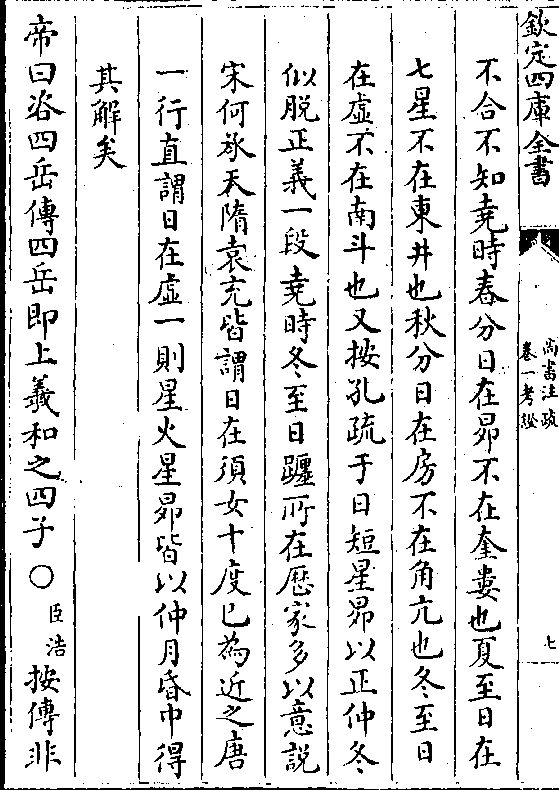 欽定四庫全書
尚書注疏
卷一考證
七
不合不知堯時春分日在昴不在奎婁也夏至日在
七星不在東井也秋分日在房不在角亢也冬至日
在虛不在南斗也又按孔疏于日短星昴以正仲冬
似脫正義一段堯時冬至日躔所在厯家多以意説
宋何承天隋袁充皆謂日在須女十度已為近之唐
一行直謂日在虛一則星火星昴皆以仲月昏中得
其解矣
帝曰咨四岳傳四岳即上羲和之四子○臣浩按傳非